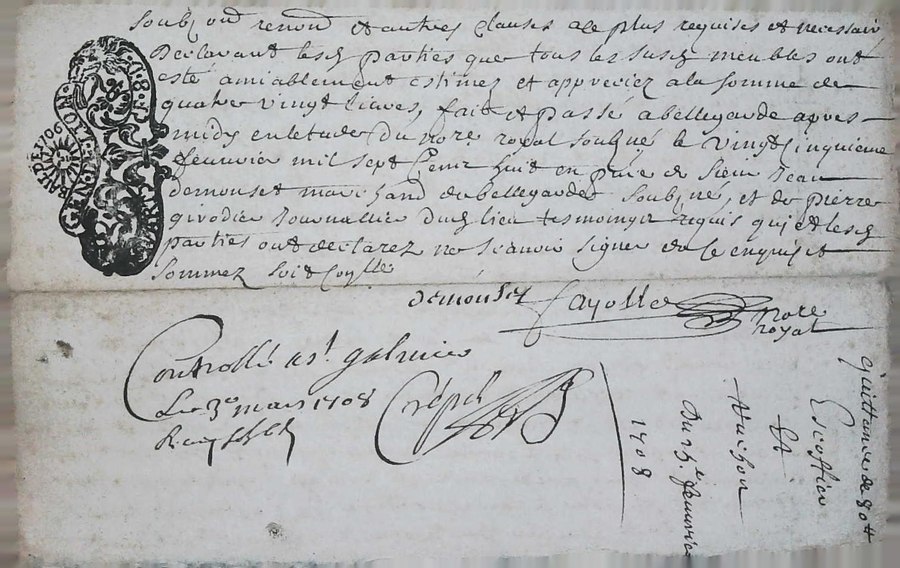 soubz ond renond et autres clauses a le plus requises et necessair
Declarant lesd parties que tous les susd meubles ont
esté amiablement estimez et appreciez a la somme de
quatre vingt livres, fait et passé a bellegarde apres
midy en letude du nore royal soubné le vingt cinquieme
feuvrier mil sept Cent huit en pnce de sieur Jean
demouset marchand de bellegarde soubné, et de pierre
givodier Journallier dud lieu tesmoingtz requis qui et lesd
parties ont declarez ne scavoir signer de ce enquis et
sommez soit
demouset fayolle nore
royal
Controllé a st galmier
Le 3e mars 1708
Crépet
quittance de 80tt
Escoffier
Et
Vachon
Du 25e feuvrier
1708
GEN. DE LYON